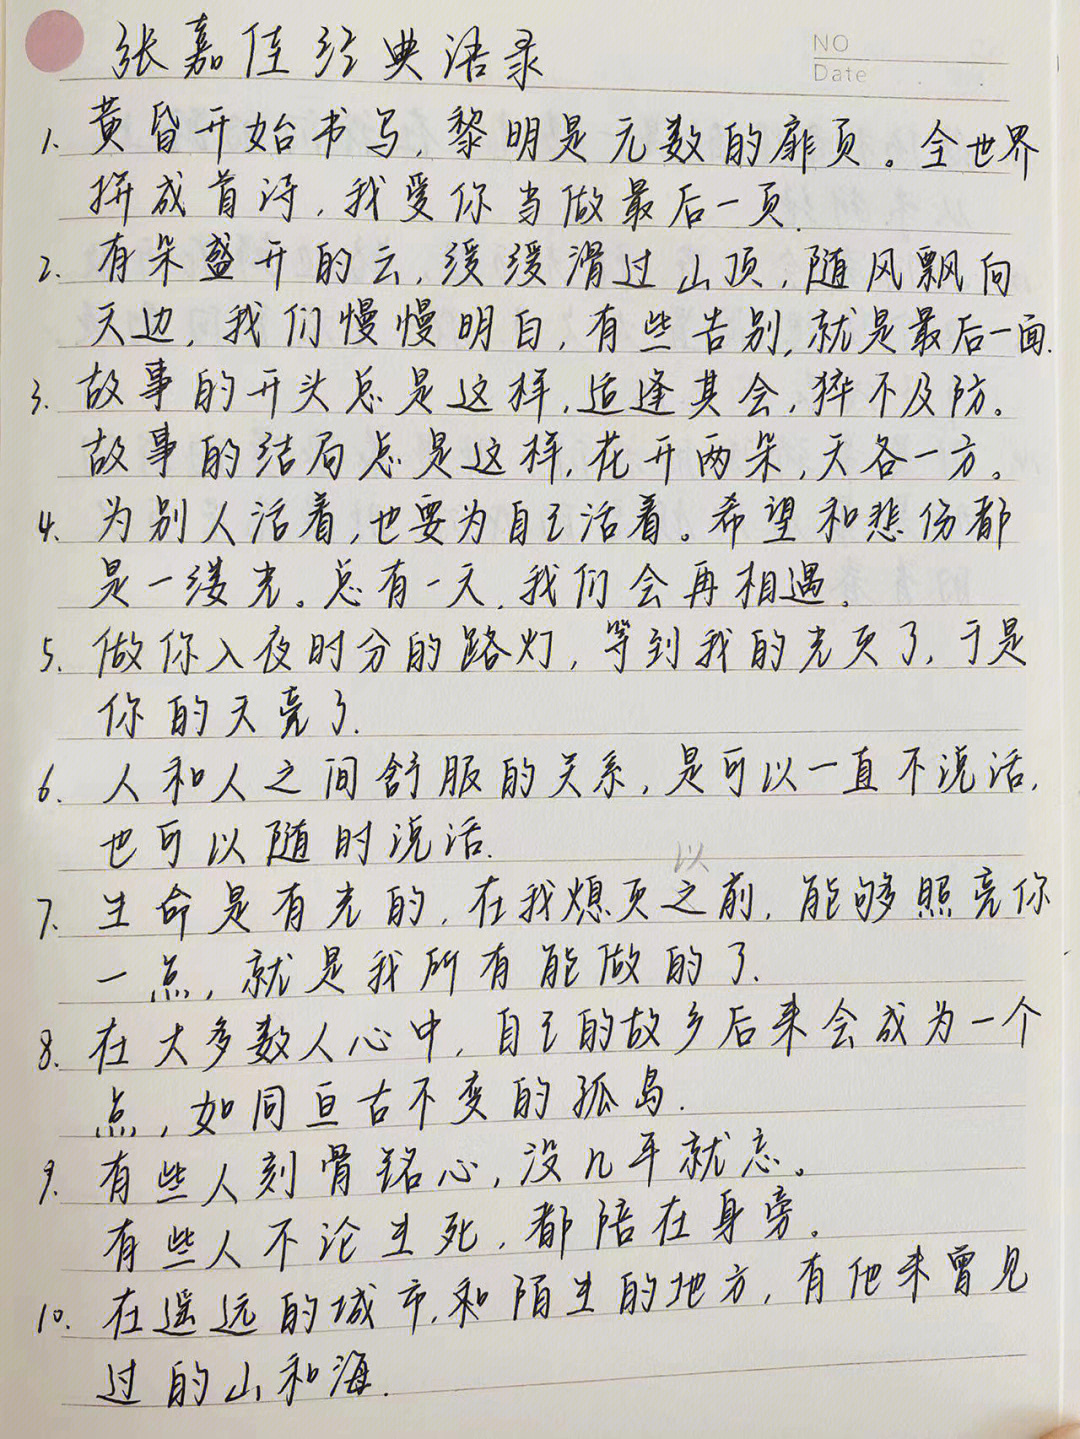 张嘉佳经典语录
NO
Date
1. 黄昏开始书写,黎明是无数的扉页。全世界
拼成首诗,我爱你当做最后一页.
2. 有朵盛开的云,缓缓滑过山顶,随风飘向
天边,我们慢慢明白,有些告别,就是最后一面.
3. 故事的开头总是这样,适逢其会,猝不及防。
故事的结局总是这样,花开两朵,天各一方。
4. 为别人活着,也要为自己活着。希望和悲伤都
是一缕光。总有一天,我们会再相遇。
5. 做你入夜时分的路灯,等到我的光灭了,于是
你的天亮了.
6. 人和人之间舒服的关系,是可以一直不说话,
也可以随时说话.
以
7. 生命是有光的,在我熄灭之前,能够照亮你
一点,就是我所有能做的了.
8. 在大多数人心中,自己的故乡后来会成为一个
点,如同亘古不变的孤岛.
9. 有些人刻骨铭心,没几年就忘。
有些人不论生死,都陪在身旁。
10. 在遥远的城市,和陌生的地方,有他未曾见
过的山和海.